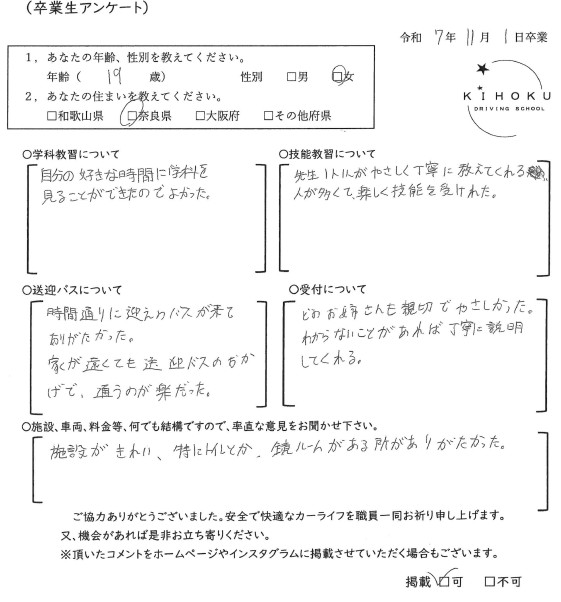 (卒業生アンケート)
令和 7年 11月 1日卒業
1，あなたの年齢、性別を教えてください。
年齢（ 19 歳） 性別 □男 □女
2，あなたの住まいを教えてください。
□和歌山県 □奈良県 □大阪府 □その他府県
KIHOKU
DRIVING SCHOOL
○学科教習について
自分の好きな時間に学科を
見ることができたのでよかった。
○技能教習について
先生1人1人がやさしく丁寧に教えてくれる
人が多くて、楽しく技能を受けれた。
○送迎バスについて
時間通りに迎えのバスが来て
ありがたかった。
家が遠くても送迎バスのおか
げで、通うのが楽だった。
○受付について
どのお姉さんも親切でやさしかった。
わからないことがあれば丁寧に説明
してくれる。
○施設、車両、料金等、何でも結構ですので、率直な意見をお聞かせ下さい。
施設がきれい、特にトイレとか、鏡ルームがある所がありがたかった。
ご協力ありがとうございました。安全で快適なカーライフを職員一同お祈り申し上げます。
又、機会があれば是非お立ち寄りください。
※頂いたコメントをホームページやインスタグラムに掲載させていただく場合もございます。
掲載 □可 □不可